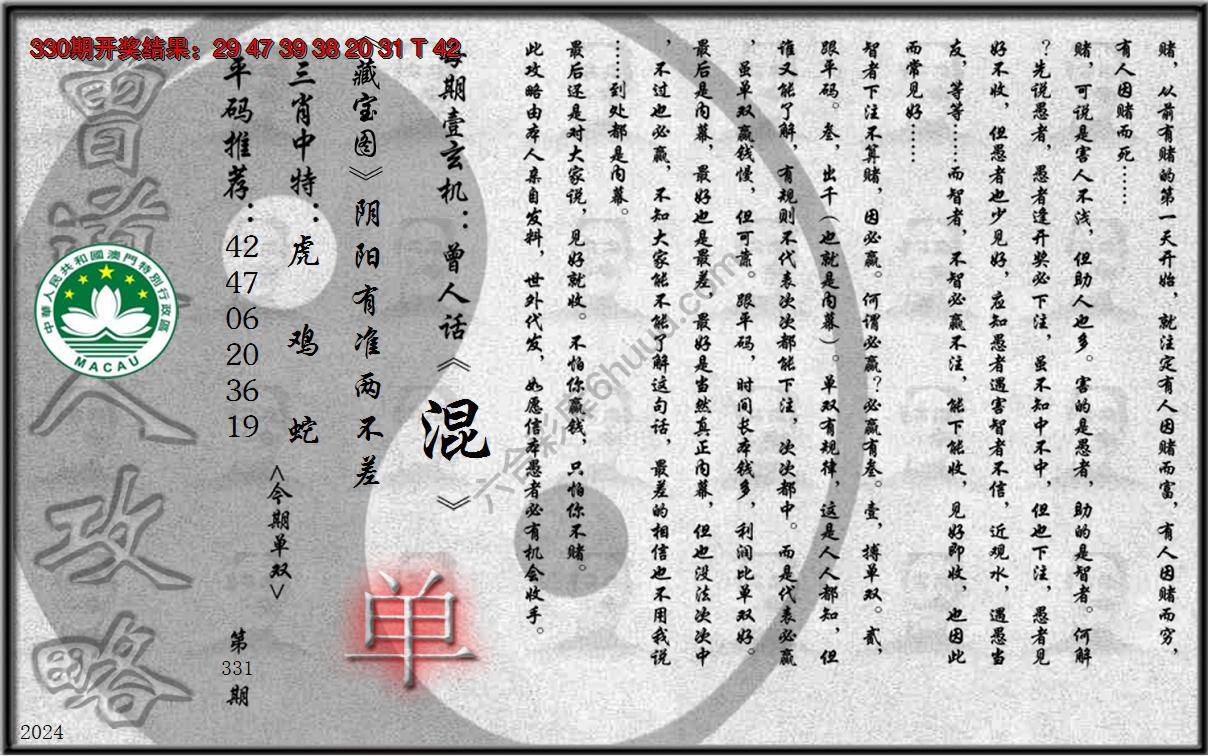 330期开奖结果：29 47 39 38 20 31 T 42
赌，从前有赌的第一天开始，就注定有人因赌而富，有人因赌而穷，
有人因赌而死……
赌，可说是害人不浅，但助人也多。害的是愚者，助的是智者。何解
？先说愚者，愚者逢开奖必下注，虽不知中不中，但也下注，愚者见
好不收，但愚者也少见好，应知愚者遇害智者不信，近观水，遇愚当
友，等等……而智者，不智必赢不注，能下能收，见好即收，也因此
而常见好……
智者下注不算赌，因必赢。何谓必赢？必赢有叁。壹，搏单双。贰，
跟平码。叁，出千（也就是内幕）。单双有规律，这是人人都知，但
谁又能了解，有规则不代表次次都能下注，次次都中。而是代表必赢
，虽单双赢钱慢，但可靠。跟平码，时间长本钱多，利润比单双好。
最后是内幕，最好也是最差，最好是当然真正内幕，但也没法次次中
，不过也必赢，不知大家能不能了解这句话，最差的相信也不用我说
……到处都是内幕。
最后还是对大家说，见好就收。不怕你赢钱，只怕你不赌。
此攻略由本人亲自发料，世外代发，如愿信本愚者必有机会收手。
每期壹玄机：曾人话《混》
《藏宝图》阴阳有准两不差
三肖中特：虎 鸡 蛇
平码推荐：42 47 06 20 36 19
<今期单双>
单
第331期
曾道人攻略
中華人民共和國澳門特別行政區
MACAU
2024